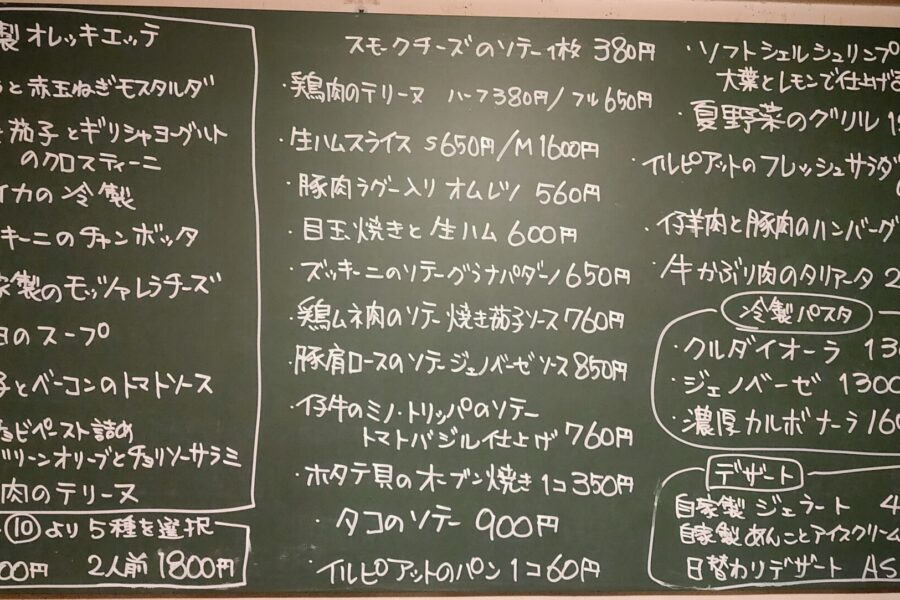 製 オレッキエッテ
と 赤玉ねぎモスタルダ
茄子とギリシャヨーグルト
のクロスティーニ
イカの冷製
キーニのチャンボッタ
家製のモッツァレラチーズ
のスープ
子とベーコンのトマトソース
ョビペースト詰め
グリーンオリーブとチョリソーサラミ
肉のテリーヌ
⑩より5種を選択
00円 2人前 1800円
スモークチーズのソテー 1枚 380円
・鶏肉のテリーヌ ハーフ380円/フル650円
・生ハムスライス S650円/M1600円
・豚肉ラグー入りオムレツ 560円
・目玉焼きと生ハム 600円
・ズッキーニのソテーグラナパダーノ 650円
・鶏ムネ肉のソテー 焼き茄子ソース 760円
・豚肩ロースのソテージェノベーゼソース 850円
・仔牛のミノ・トリッパのソテー
トマトバジル仕上げ 760円
・ホタテ貝のオーブン焼き 1コ350円
・タコのソテー 900円
・イルピアットのパン 1コ60円
・ソフトシェルシュリンプ
大葉とレモンで仕上げる
・夏野菜のグリル 1
・イルピアットのフレッシュサラダ
・仔羊肉と豚肉のハンバーグ
・牛かぶり肉のタリアータ 2
冷製パスタ
・クルダイオーラ 13
・ジェノベーゼ 1300
・濃厚カルボナーラ 160
デザート
自家製 ジェラート 4
自家製あんことアイスクリーム
日替わりデザート AS